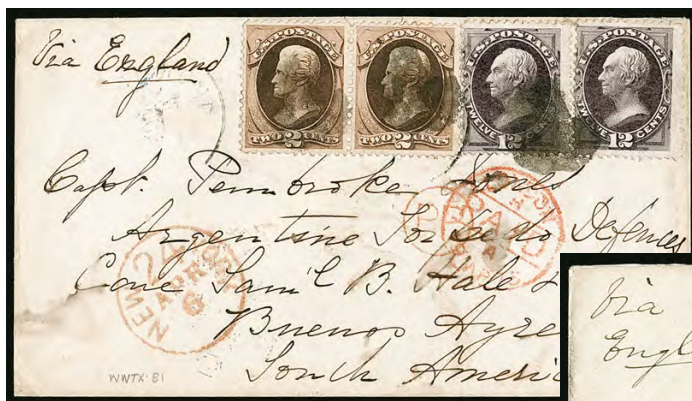 Via England
U.S. POSTAGE
TWO 2 CENTS
U.S. POSTAGE
TWO 2 CENTS
U.S. POSTAGE
TWELVE 12 CENTS
U.S. POSTAGE
TWELVE 12 CENTS
Capt. Pembroke Jones
Argentine Torpedo Defences
Care Saml B. Hale &
Buenos Ayre
South Americ
NEW YORK
24
APR
WWTX-81
Via
Engl